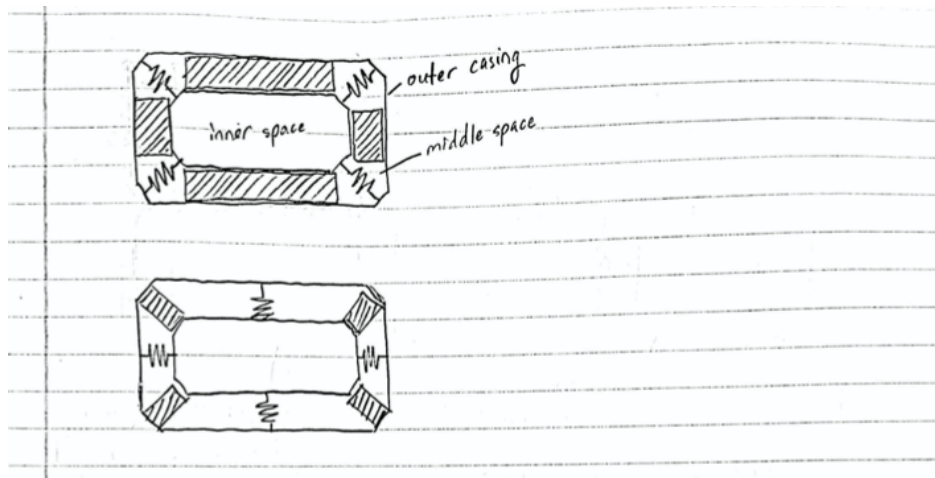 outer casing
inner space
middle space